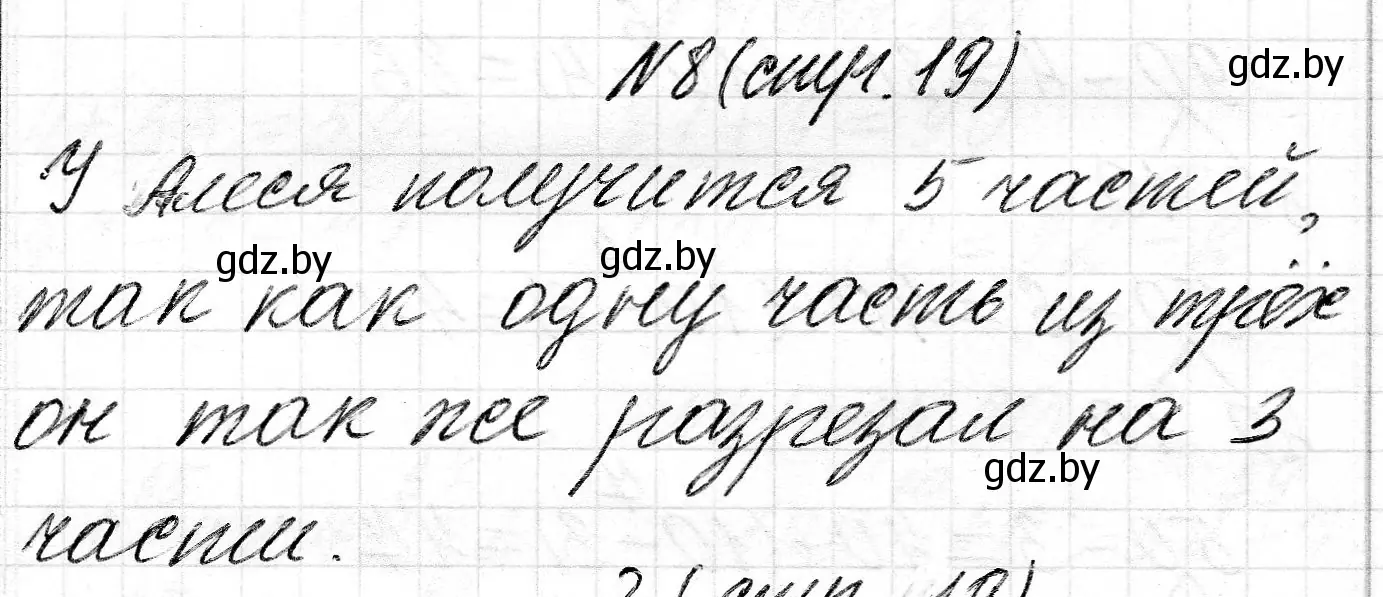 №8 (стр. 19)
gdz.by
У Алеся получится 5 частей,
gdz.by
gdz.by
так как одну часть из трёх
он так же разрезал на 3
gdz.by
части.
? (стр. 19)